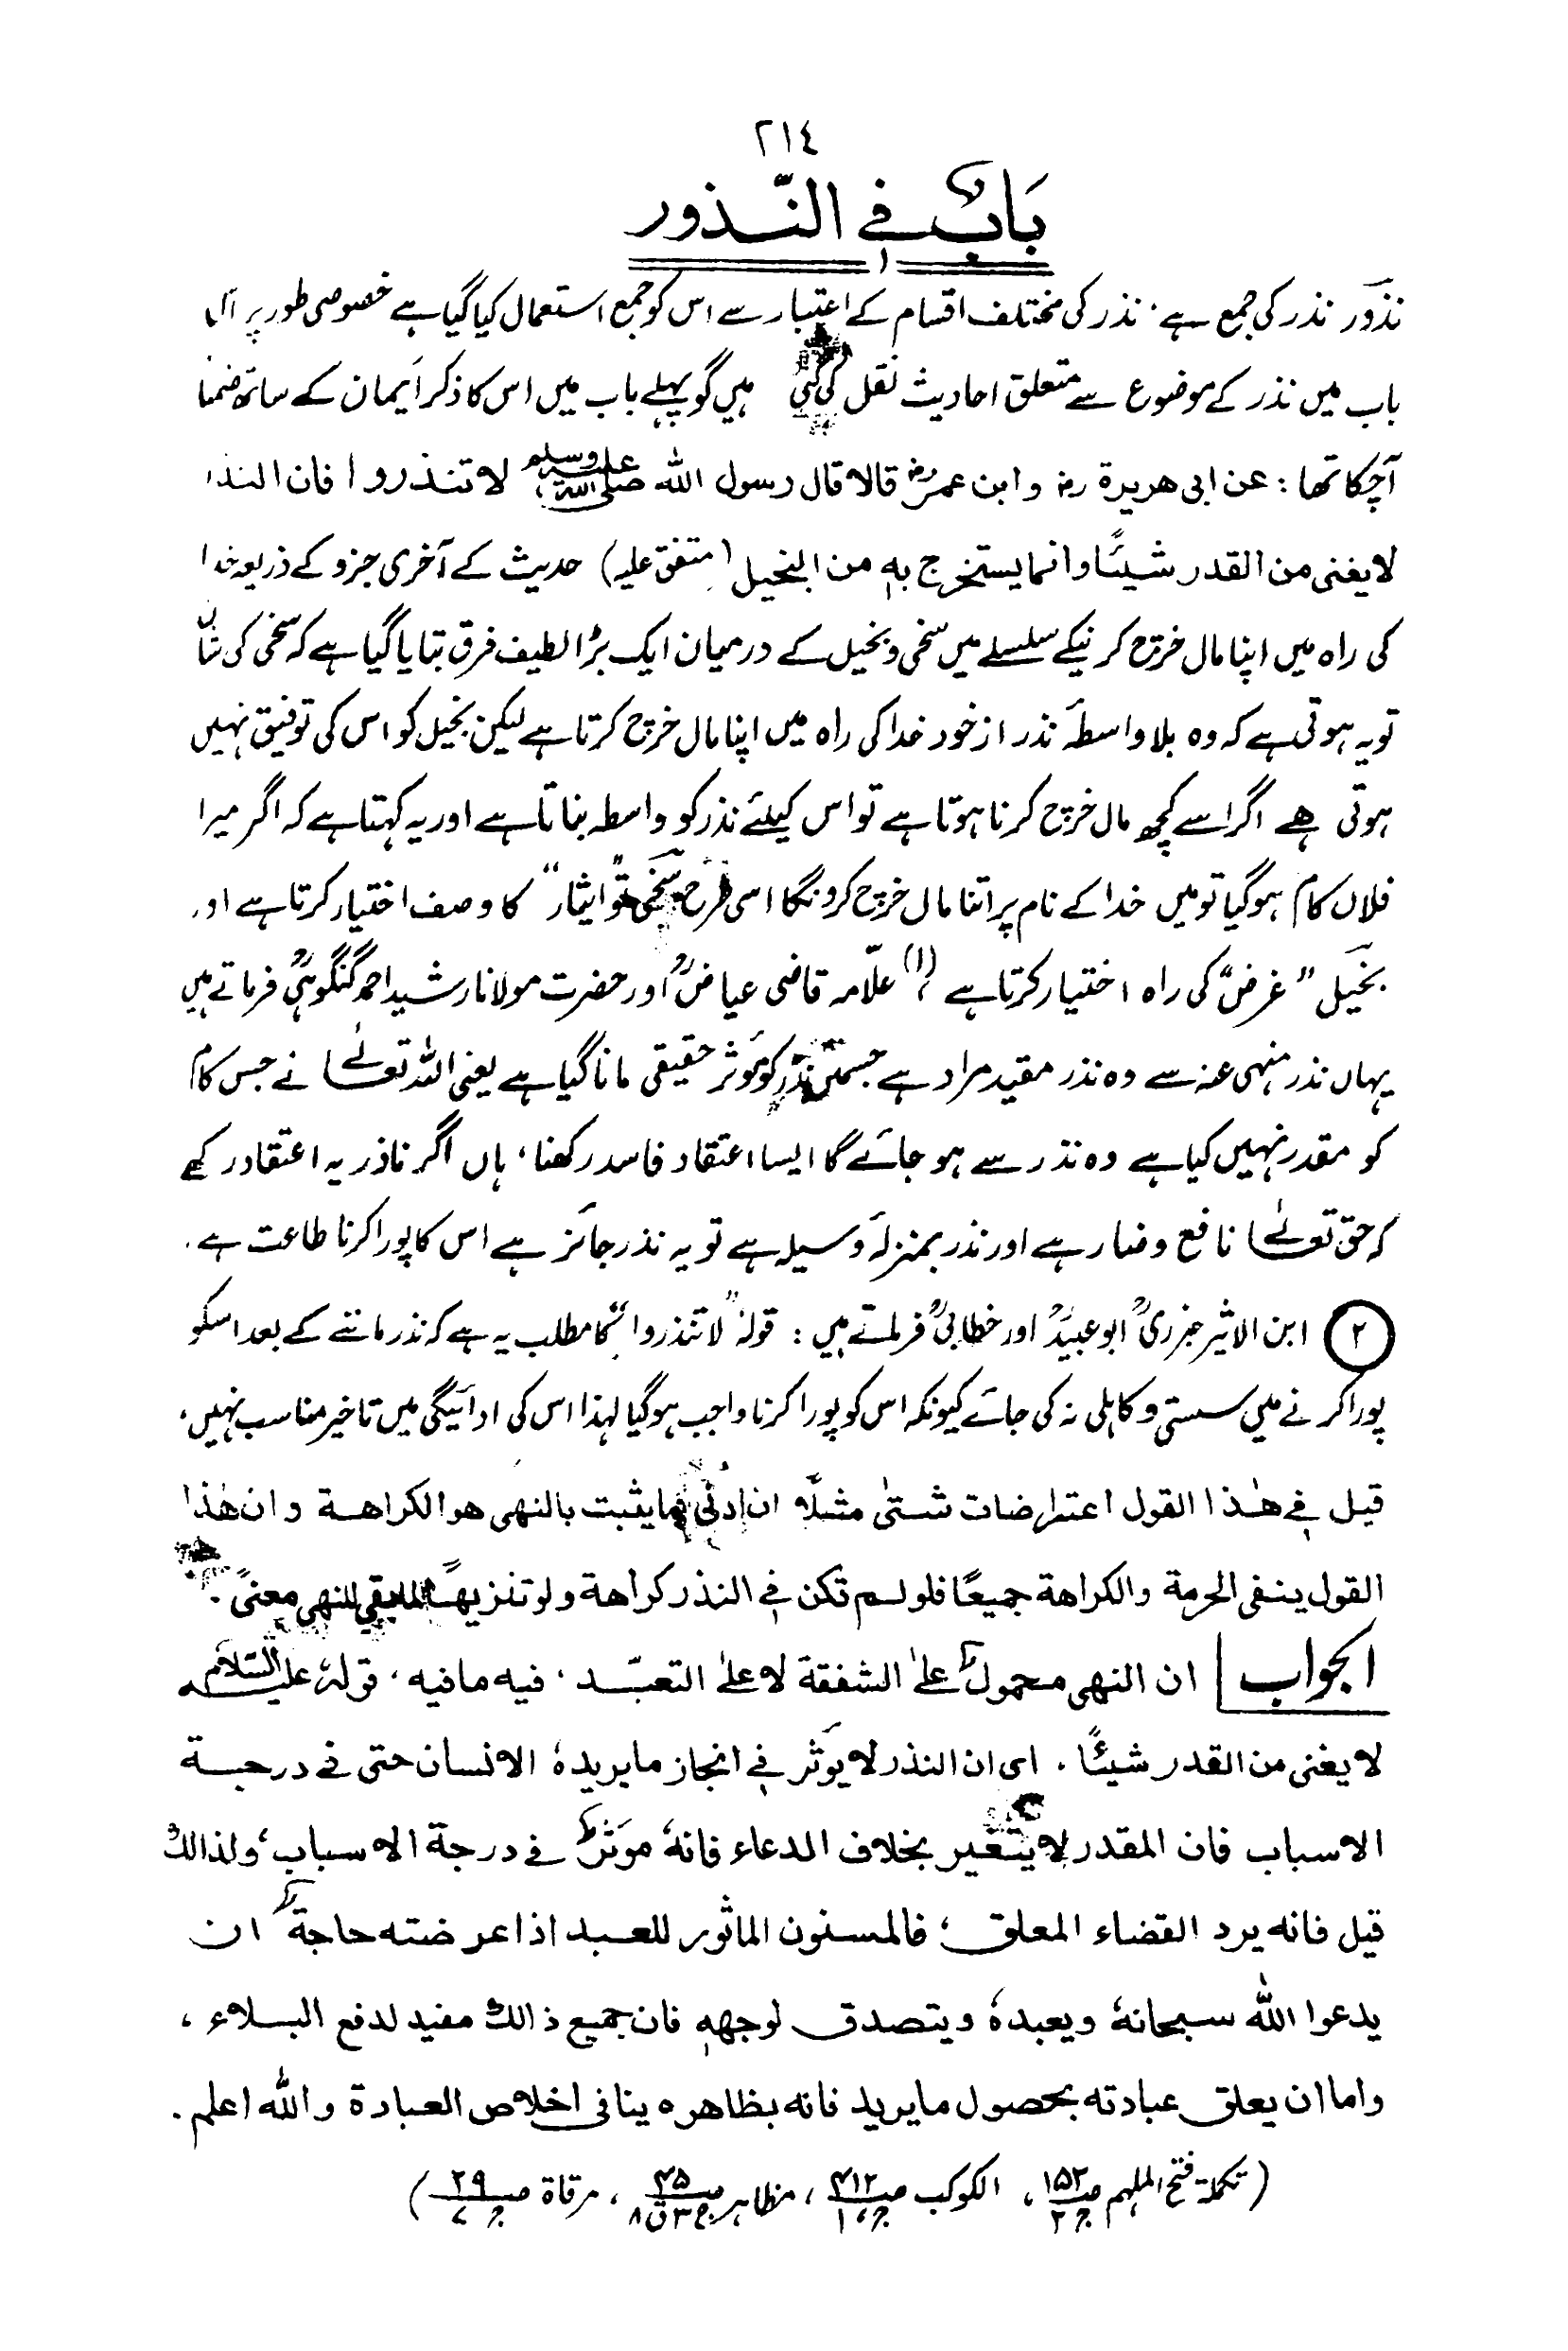 ٢١٤
بَابٌ فی النّذور
نذور نذر کی جمع ہے، نذر کی مختلف اقسام کے اعتبار سے اس کو جمع استعمال کیا گیا ہے خصوصی طور پر اس
باب میں نذر کے موضوع سے متعلق احادیث نقل کی گئی ہیں گو پہلے باب میں اس کا ذکر ایمان کے ساتھ ضمناً
آچکا تھا : عن ابی هریرة رض و ابن عمرؓ قالا قال رسول الله صلی اللہ علیہ وسلم لا تنذروا فان النذر
لا یغنی من القدر شیئًا وانما یستخرج بہٖ من البخیل (متفق علیہ) حدیث کے آخری جزو کے ذریعہ خدا
کی راہ میں اپنا مال خرچ کرنیکے سلسلے میں سخی و بخیل کے درمیان ایک بڑا لطیف فرق بتایا گیا ہے کہ سخی کی شان
تو یہ ہوتی ہے کہ وہ بلا واسطۂ نذر از خود خدا کی راہ میں اپنا مال خرچ کرتا ہے لیکن بخیل کو اس کی توفیق نہیں
ہوتی ہے اگر اسے کچھ مال خرچ کرنا ہوتا ہے تو اس کیلئے نذر کو واسطہ بناتا ہے اور یہ کہتا ہے کہ اگر میرا
فلاں کام ہو گیا تو میں خدا کے نام پر اتنا مال خرچ کرونگا اسی طرح سخی تو "ایثار" کا وصف اختیار کرتا ہے اور
بخیل "غرض" کی راہ اختیار کرتا ہے (۱) علّامہ قاضی عیاضؒ اور حضرت مولانا رشید احمد گنگوہیؒ فرماتے ہیں
یہاں نذر منہی عنہ سے وہ نذر مقید مراد ہے جسمیں نذر کو مؤثر حقیقی مانا گیا ہے یعنی اللہ تعالےٰ نے جس کام
کو مقدر نہیں کیا ہے وہ نذر سے ہو جائے گا ایسا اعتقاد فاسد رکھنا، ہاں اگر ناذر یہ اعتقاد رکھے
کہ حق تعالےٰ نافع و ضار ہے اور نذر بمنزلۂ وسیلہ ہے تو یہ نذر جائز ہے اس کا پورا کرنا طاعت ہے.
(۲) ابن الاثیر جزریؒ ابو عبیدؒ اور خطابیؒ فرماتے ہیں : قولہٗ "لا تنذروا" کا مطلب یہ ہے کہ نذر ماننے کے بعد اسکو
پورا کرنے میں سستی و کاہلی نہ کی جائے کیونکہ اس کو پورا کرنا واجب ہو گیا لہذا اس کی ادائیگی میں تاخیر مناسب نہیں،
قیل فی هٰذا القول اعتراضات شتیٰ مثلاً ان ادنی ما یثبت بالنهی هو الکراهة وان هٰذا
القول ینفی الحرمة والکراهة جمیعًا فلو لم تکن فی النذر کراهة ولو تنزیهًا لما بقی للنهی معنیً.
الجواب ان النهی محمولٌ علیٰ الشفقة لا علیٰ التعبّد، فیه ما فیه، قولہٗ علیہ السّلام
لا یغنی من القدر شیئًا. ای ان النذر لا یؤثر فی انجاز ما یریدہٗ الانسان حتی فی درجة
الاسباب فان المقدر لا یتغیر بخلاف الدعاء فانهٗ مؤثرٌ فی درجة الاسباب، ولذالک
قیل فانه یرد القضاء المعلق، فالمسنون الماثور للعبد اذا عرضته حاجةٌ ان
یدعوا اللّٰه سبحانهٗ ویعبدهٗ ویتصدق لوجههٖ فان جمیع ذالک مفید لدفع البلاء،
واما ان یعلق عبادته بحصول ما یرید فانه بظاهره ینافی اخلاص العبادة واللّٰه اعلم.
(تکملۃ فتح الملہم ص۱۵۲ ج۲، الکوکب ص۴۱۲ ج۱، مظاہر ص۳۵ ج۳ ق۸، مرقاة ص۲۹ ج۷)